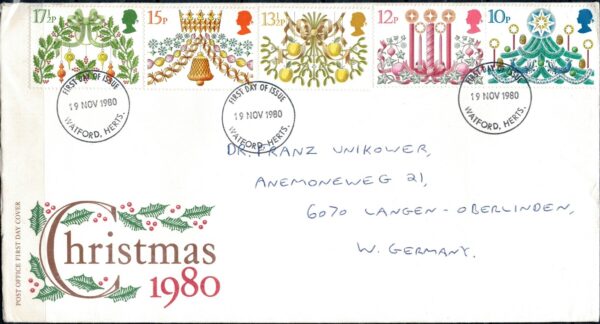 17½p 15p 13½p 12p 10p
FIRST DAY OF ISSUE
19 NOV 1980
WATFORD, HERTS.
FIRST DAY OF ISSUE
19 NOV 1980
WATFORD, HERTS.
FIRST DAY OF ISSUE
19 NOV 1980
WATFORD, HERTS.
DR. FRANZ UNIKOWER,
ANEMONEWEG 21,
6070 LANGEN-OBERLINDEN,
W. GERMANY.
POST OFFICE FIRST DAY COVER
Christmas
1980